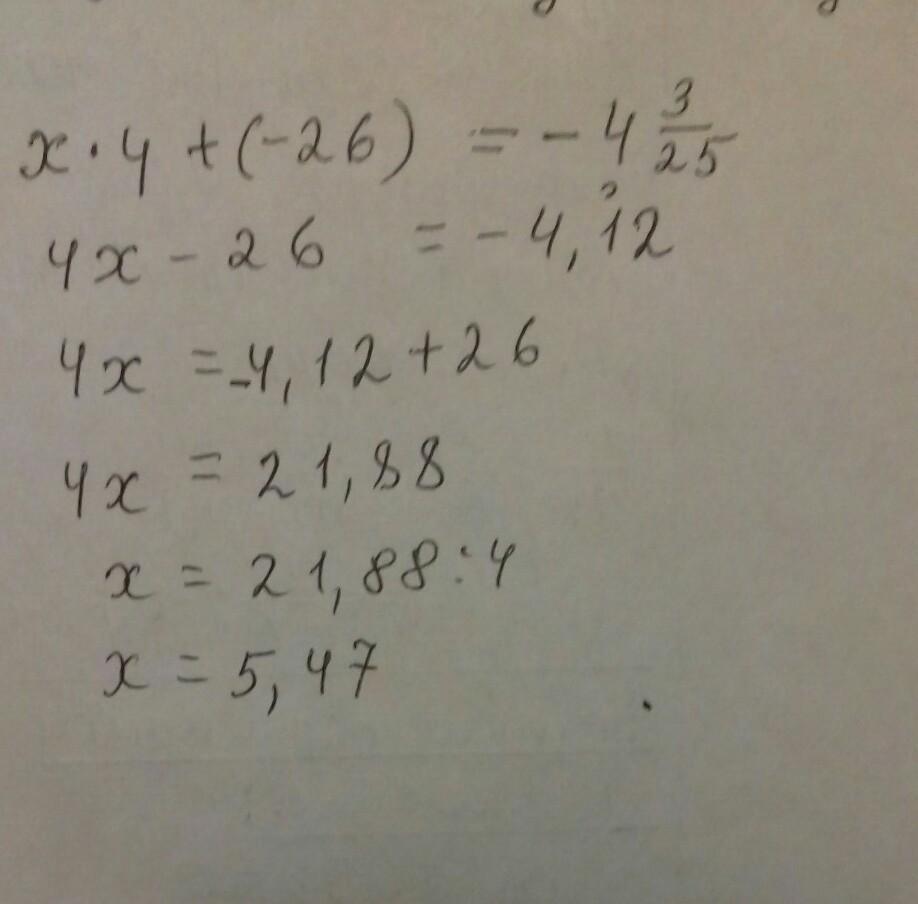 x · 4 + (-26) = -4 3/25
4x - 26 = -4,12
4x = -4,12 + 26
4x = 21,88
x = 21,88 : 4
x = 5,47